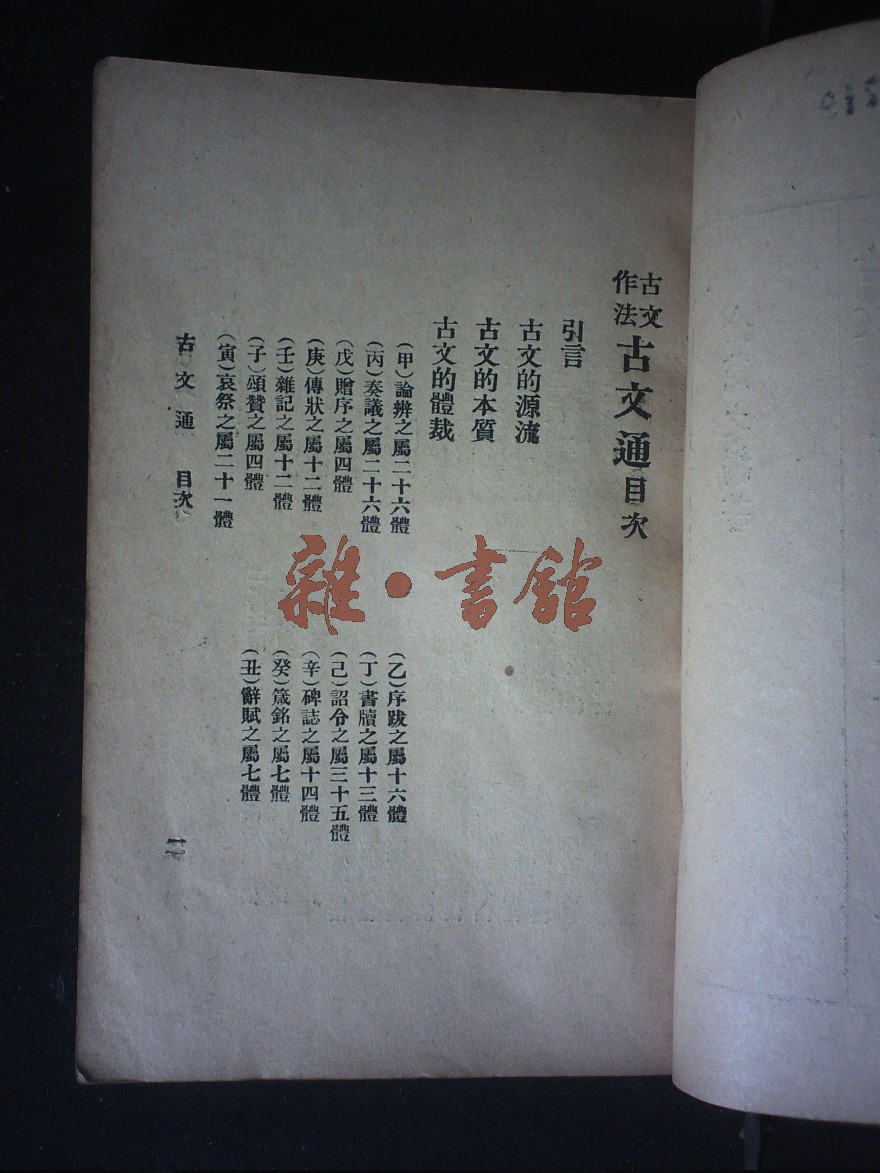 古文作法 古文通目次
引言
古文的源流
古文的本質
古文的體裁
（甲）論辨之屬二十六體
（乙）序跋之屬十六體
（丙）奏議之屬二十六體
（丁）書牘之屬十三體
（戊）贈序之屬四體
（己）詔令之屬三十五體
（庚）傳狀之屬十二體
（辛）碑誌之屬十四體
（壬）雜記之屬十二體
（癸）箴銘之屬七體
（子）頌贊之屬四體
（丑）辭賦之屬七體
（寅）哀祭之屬二十一體
古文通 目次
雜·書館